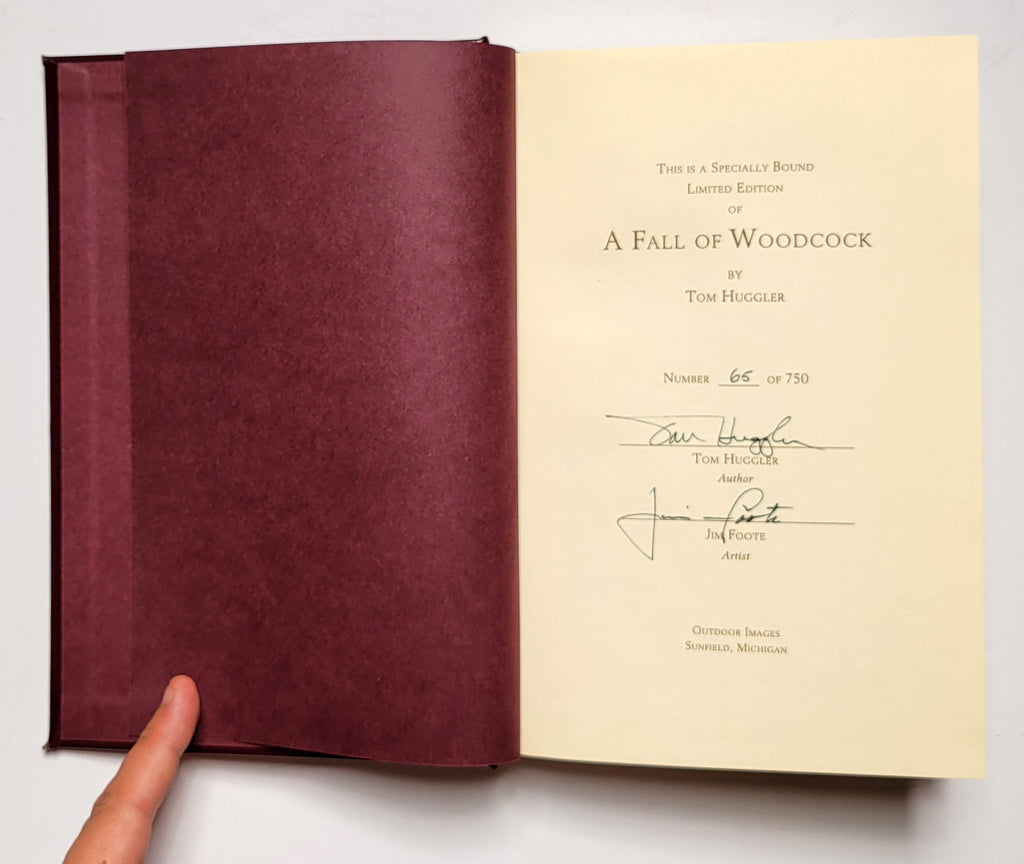 This is a Specially Bound
Limited Edition
of
A Fall of Woodcock
by
Tom Huggler
Number 65 of 750
Tom Huggler
Tom Huggler
Author
Jim Foote
Jim Foote
Artist
Outdoor Images
Sunfield, Michigan